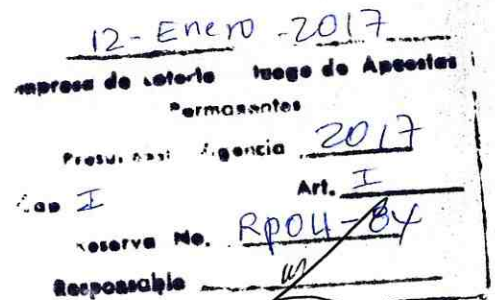 12-Enero-2017
mpresa de Loteria Juego de Apuestas
Permanentes
Presu Vigencia 2017
Cap I Art. I
Reserva No. RP04-84
Responsable